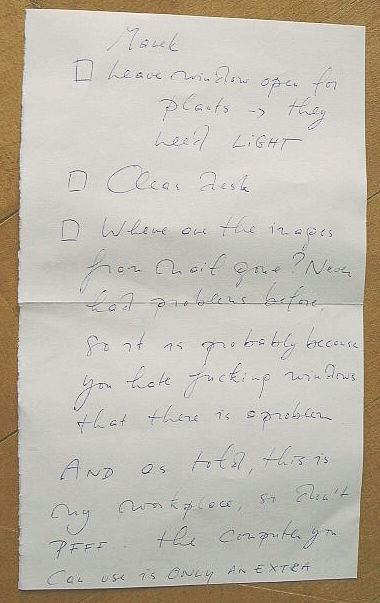 Marek
□ Leave window open for
plants -> they
need LIGHT
□ Clear Desk
□ Where are the images
from mail gone? Never
had problems before,
so it is probably because
you hate fucking windows
that there is a problem
AND as told, this is
my workplace, so don't
PFFF. the computer you
can use is ONLY AN EXTRA